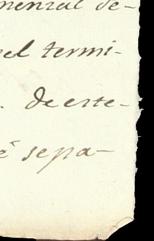 mensal de-
el termi-
. de este-
é sepa-